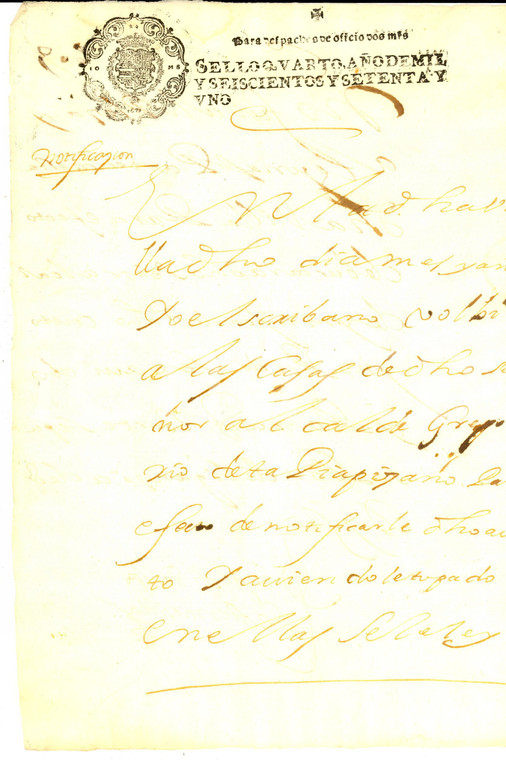 Para despachos de officio dos mrs
SELLO QVARTO, AÑO DE MIL
Y SEISCIENTOS Y SETENTA Y
VNO
Notificazion
En la d. ha
lla dho dia mes y añ
Yo el scribano volbi
a las Casas de dho s
ñor alcalde Greg
rio de Pa
efeto de notificarle dho au
to Y aviendole topado
en ellas se la ley